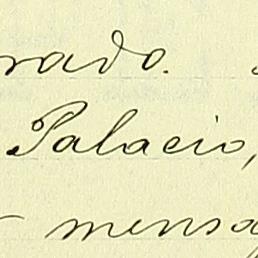 rado.
Palacio,
mensa